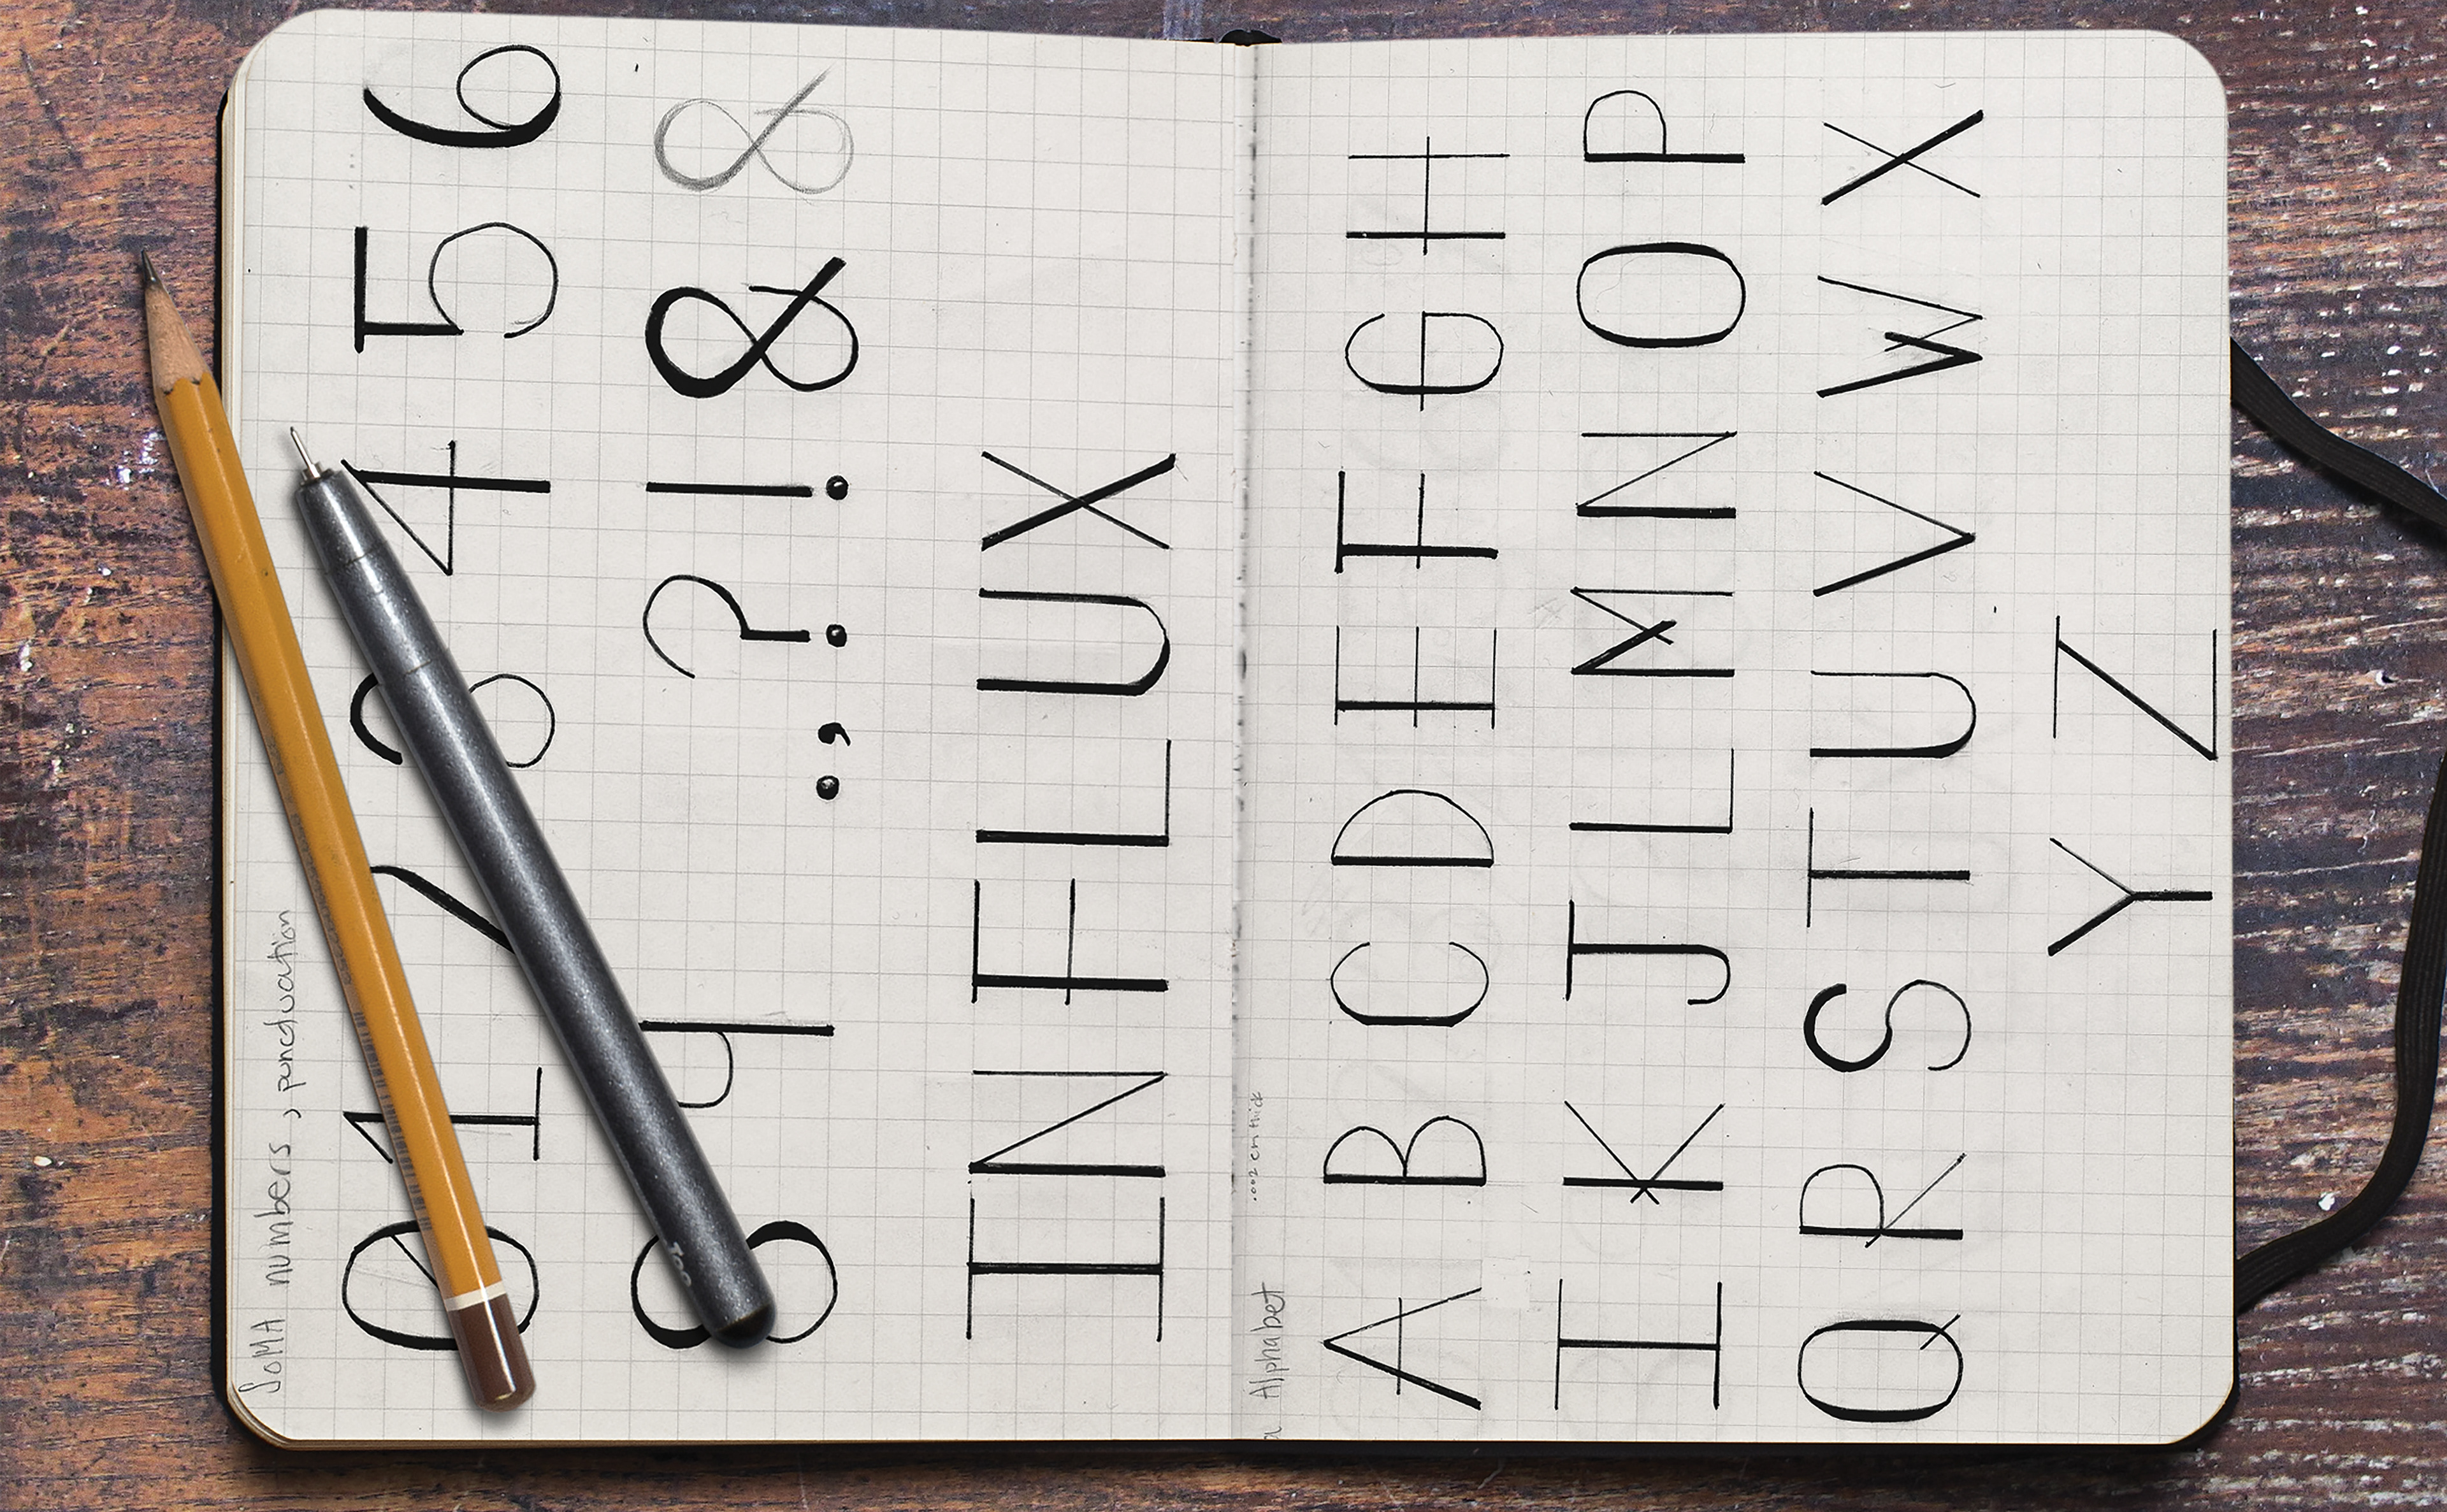 SoMA numbers, punctuation
0 1 2 3 4 5 6
8 9 . , ? ! & &
INFLUX
Alphabet .002 cm thick
A B C D E F G H
I K J L M N O P
Q R S T U V W X
Y Z